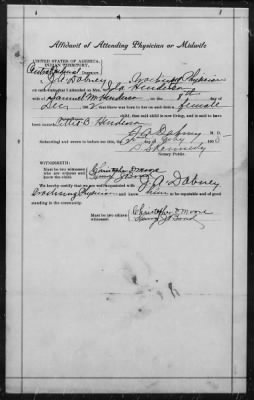 Affidavit of Attending Physician or Midwife
UNITED STATES OF AMERICA,
INDIAN TERRITORY,
Central DISTRICT
I, J. A. Dabney, a Practicing Physician
on oath state that I attended on Mrs. Ida Henderson
wife of Samuel M Henderson on the 8th
Dec 2 that there was born to her on said date a female
child; that said child is now living, and is said to have
been named Pettie B Henderson
J. A. Dabney M.D.
Subscribed and sworn to before me, this day of July 1905
Notary Public.
WITNESSETH:
Must be two witnesses who are witnesses and know the child.
Christopher D Moore
We hereby certify that we are well acquainted with J. A. Dabney
Practicing Physician and know him to be reputable and of good
standing in the community.
Must be two citizen witnesses.
Christopher D Moore